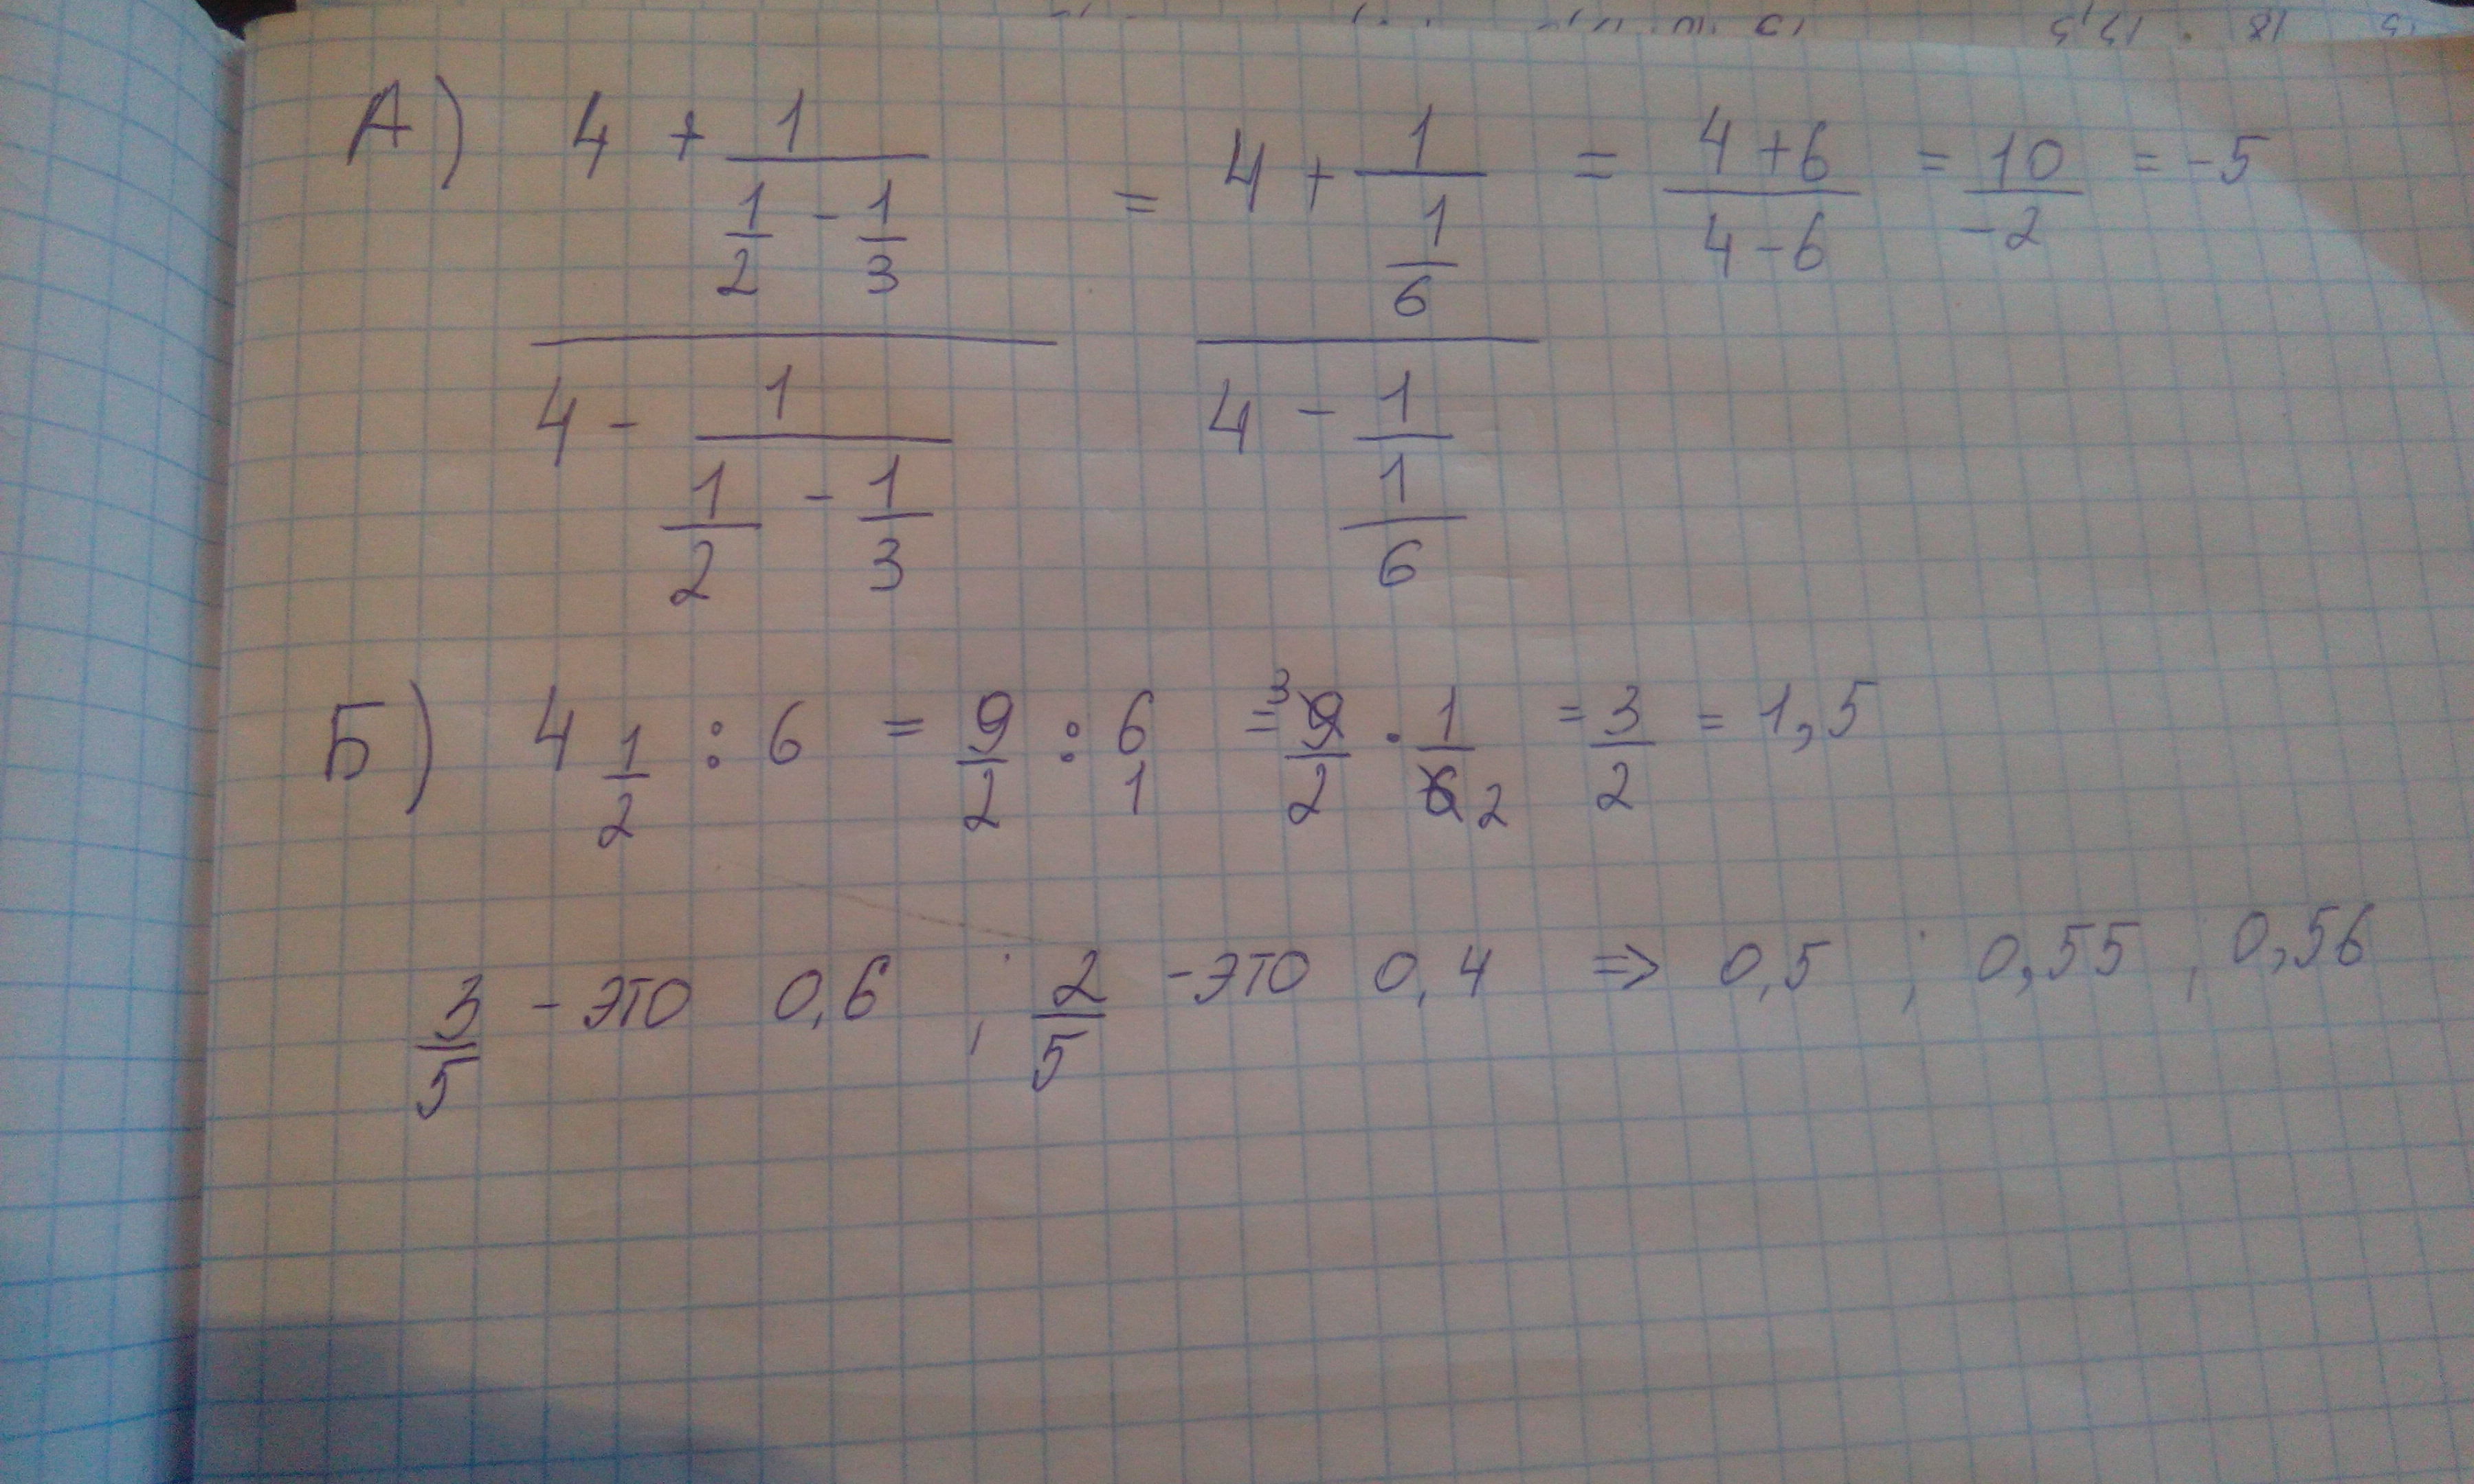 А) (4 + 1/(1/2 - 1/3)) / (4 - 1/(1/2 - 1/3)) = (4 + 1/(1/6)) / (4 - 1/(1/6)) = (4+6)/(4-6) = 10/-2 = -5
Б) 4 1/2 : 6 = 9/2 : 6/1 = 3 9/2 · 1/6 2 = 3/2 = 1,5
3/5 - это 0,6 ; 2/5 - это 0,4 => 0,5 ; 0,55 ; 0,56